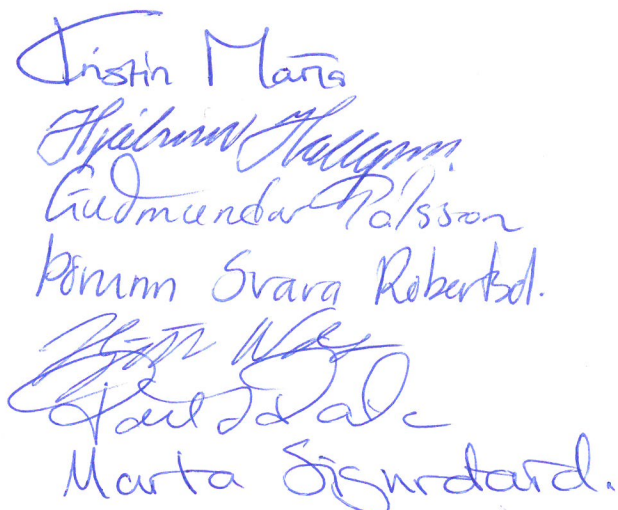 Kristín María
Hjálmar Hallgrím.
Guðmundur Pálsson
Þórunn Svava Róbertsd.
Páll Valur
Marta Sigurðard.